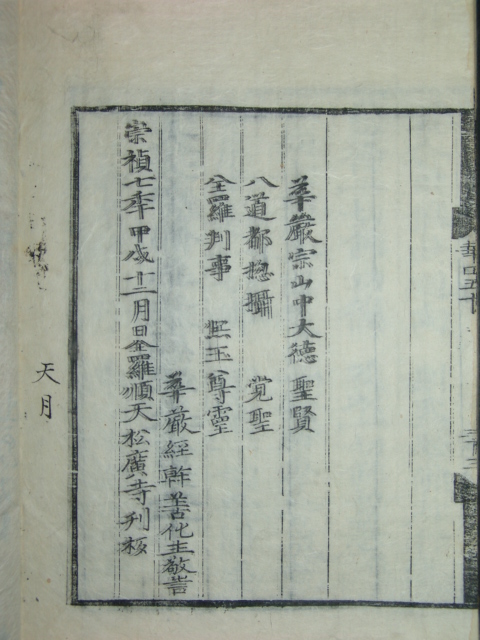 華嚴宗山中大德 聖賢
八道都摠攝 覚聖
全羅判事 熈玉尊靈
華嚴經幹善化主敬告
崇禎七年甲戌十二月日全羅順天松廣寺刊板
天月